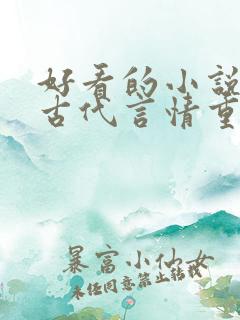 好看的小说
古代言情重
暴富小仙女
未经同意禁止转载